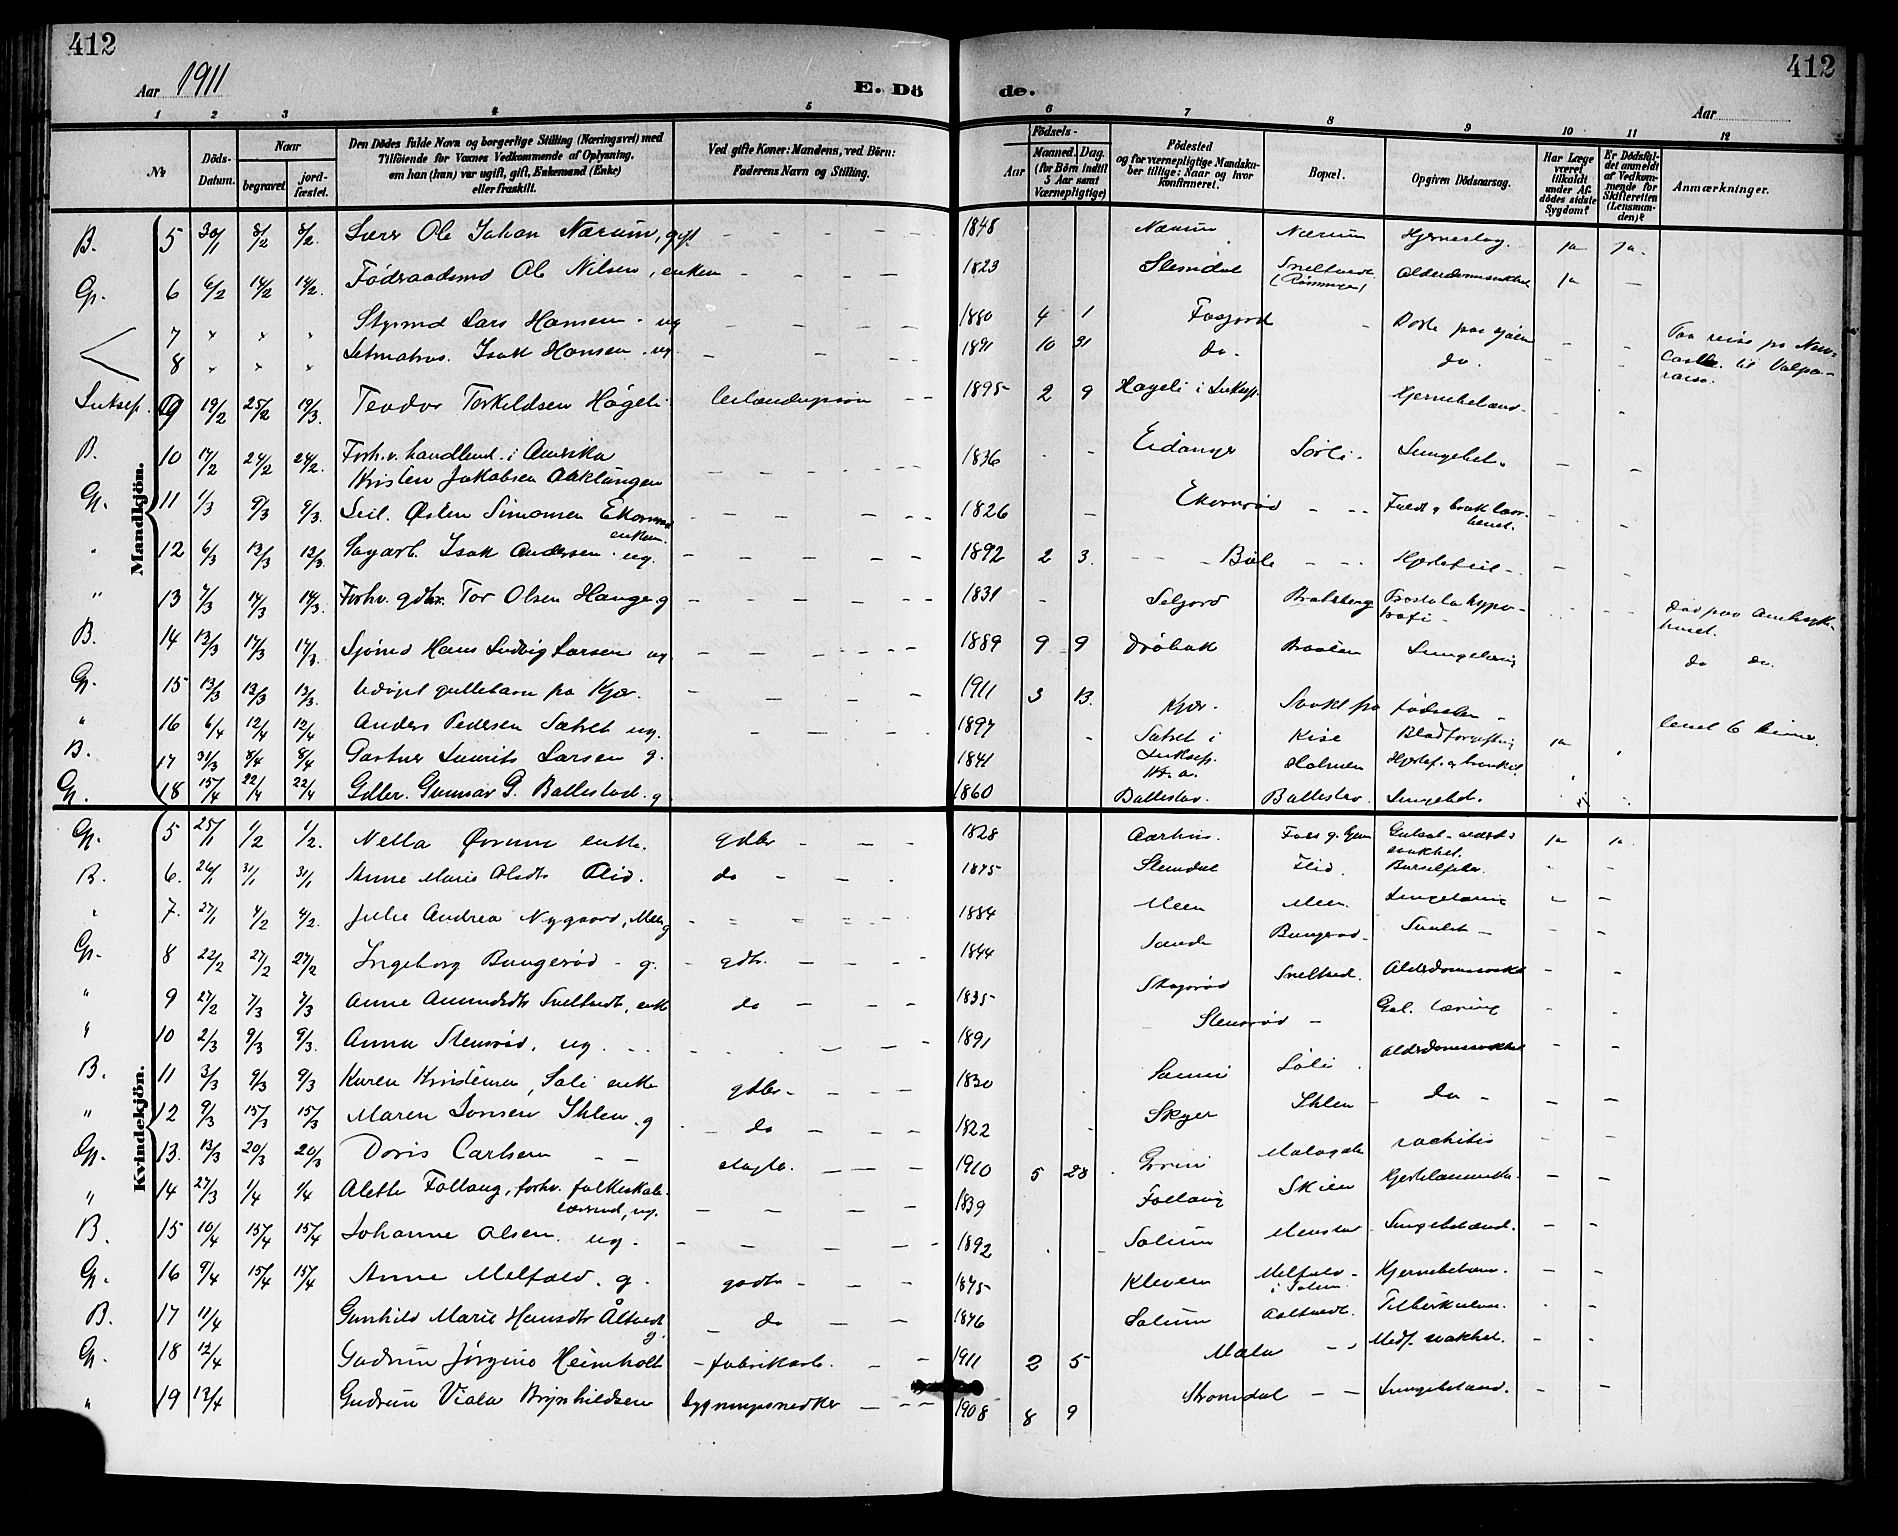 412
412
Aar 1911
E. Dö
de.
Aar
1 2 3 4 5 6 7 8 9 10 11 12
No
Döds-Datum.
Naar
begravet
jordfæstet.
Den Dödes fulde Navn og borgerlige Stilling (Næringsvei) med
Tilföiende for Voxnes Vedkommende af Oplysning,
om han (hun) var ugift, gift, Enkemand (Enke)
eller fraskilt.
Ved gifte Koner: Mandens, ved Börn:
Faderens Navn og Stilling.
Födsels-
Aar
Maaned. Dag.
(for Börn indtil 5 Aar samt Værnepligtige)
Födested
og for værnepligtige Mandskaber tillige: Naar og hvor Konfirmeret.
Bopæl.
Opgiven Dödsaarsag.
Har Læge været tilkaldt under Afdödes sidste Sygdom?
Er Dödsfaldet anmeldt af Vedkommende for Skifteretten (Lensmanden)?
Anmærkninger.
Mandkjön.
B. 5 30/1 8/2 8/2. Lærer Ole Johan Nærum, gift 1848 Nærum Nærum Hjerneslag. ja ja.
Gp. 6 6/2 14/2 14/2. Födraadsmd Ole Nilsen, enkem 1823 Slemdal Sneltvedt Alderdomssvakhet ja
7 " " " Styrmd Lars Hansen. ug 1880 4 1 Fosjord Döde paa sjöen Paa reise fra New-
8 " " " Isak Hansen. ug. 1891 10 31 do. do. castle til Valpa-
raiso.
9 19/2 25/2 19/3. Teodor Torkildsen Högeli 1895 2 9 Hogeli i Luksep. Hjernebetænd.
B. 10 17/2 24/2 24/2. Forh.v. handlend. i Amerika
Kristen Jakobsen Oaklungen 1836 Eidanger Sörli. Lungebet.
Gp. 11 1/3 9/3 9/3. Östen Simonsen Ekornrød
enkem. 1826 Ekornrød
" 12 6/3 13/3 13/3. Sagarb. Isak Andersen. ug. 1892 2 3. Böle Hjertefeil
" 13 7/3 14/3 14/3. Forhv. gdbr. Tor Olsen Hauge g 1831 Seljord Bratsberg Prostatahypertrofi Död paa Amtssyk-
huset.
B. 14 13/3 17/3 17/3. Sjömd Hans Ludvig Larsen ug. 1889 9 9 Dröbak Braaten Lungetæring do do.
Gp. 15 13/3 13/3 13/3. Udöpt guttebarn fra Kjær. 1911 3 13. Kjær. Svakt fra födselen levet 6 timer.
" 16 6/4 12/4 12/4 Anders Pedersen Sætret ug. 1897 Sætret i Kise Blodforgiftning ja
B. 17 31/3 8/4 8/4 Gartner Laurits Larsen g. 1841 Luksep. Holmen
Gp. 18 15/4 22/4 22/4 Gdbr. Gunnar G. Ballestad. g 1860 Ballestad. Ballestad. Lungebet.
Kvindekjön.
Gp. 5 25/1 1/2 1/2. Nella Övrum enke. gdbr 1828 Aarhus. ja ja
B. 6. 26/1 31/1 31/1 Anne Marie Olsdtr Flid. do 1875 Slemdal Flid. Barselfeber.
" 7. 27/1 4/2 4/2. Julie Andrea Nygaard, Meen g 1884 Meen Meen. Lungetæring
Gp. 8 22/2 27/2 27/2 Ingeborg Bungerød g. gdbr. 1844 Sande Bungerød
" 9 27/2 7/3 7/3 Anne Amundsdtr Sneltvedt, enke do 1835 Sneltved. Alderdomssvakh
" 10 2/3 9/3 9/3. Anna Stensrød, ug. 1891 Stensrød Gal. tæring
B. 11 3/3 9/3 9/3 Karen Kristensen, Söli enke gdbr 1830 Söli Alderdomssvakhet
" 12 9/3 15/3 15/3 Maren Jonsen Ihlen. g do 1822 Skyer Ihlen do
Gp. 13. 13/3 20/3 20/3 Doris Carlsen 1910 5 28 Grini rachitis
" 14 27/3 1/4 1/4 Alette Follaug, forhv. folkeskole-
lærerind, ug. 1839 Follaug Skien
B. 15 10/4 15/4 15/4 Johanne Olsen. ug. 1892 Solum Menstad Lungebetænd.
Gp. 16 9/4 15/4 15/4 Anne Melfald. g. gdbr 1875 Kleven Melfald
i Solum Hjernebetæn.
B. 17 11/4 Gunhild Marie Hansdtr Åltvedt g. do 1876 Solum Aaltvedt. Tuberkulose.
Gp. 18 12/4 Gudrun Jörgine Heimholt fabrikarb. 1911 2 5 Mæla Medf. svakhet.
" 19 13/4 Gudrun Viola Brynhildsen Bygningssnedker 1908 8 9 Stromdal Lungebetænd.